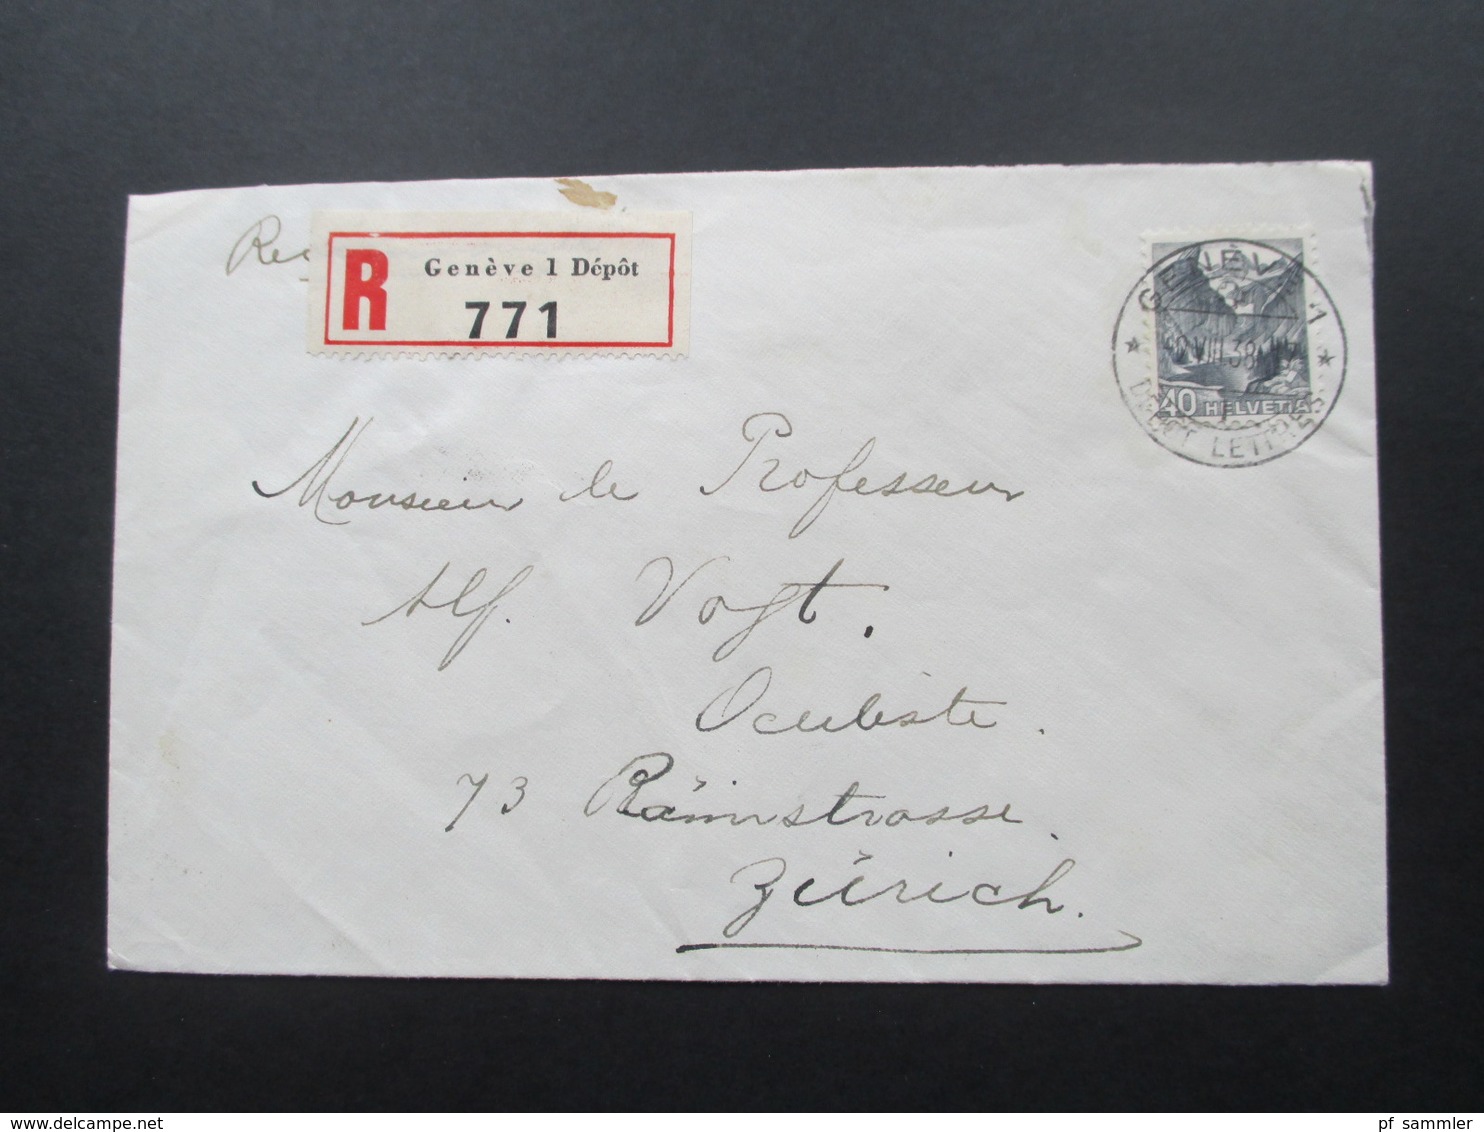 Rec
R Genève 1 Dépôt
771
GENÈVE 1
VIII.38
DÉPÔT LETTRES
40 HELVETIA
Monsieur le Professeur
Alf. Vogt.
Oculiste.
73 Rämistrasse.
Zürich.
www.delcampe.net
pf_sammler